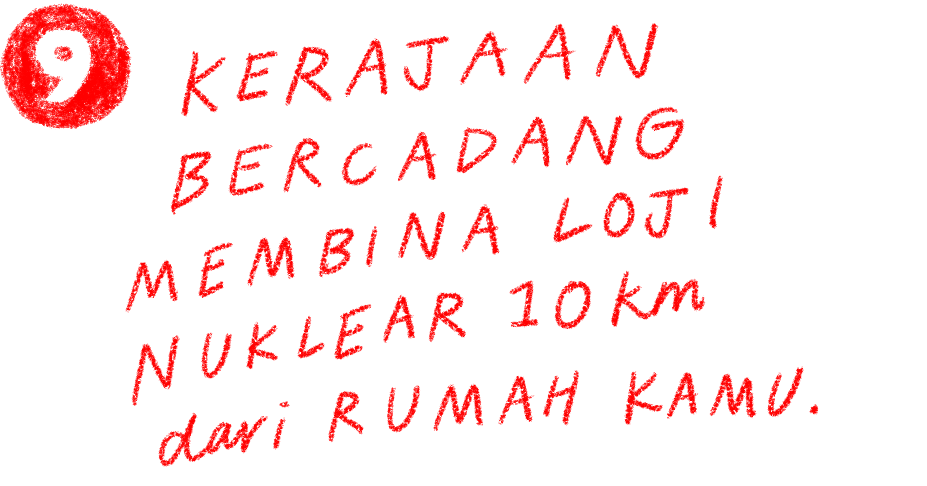 9
KERAJAAN
BERCADANG
MEMBINA LOJI
NUKLEAR 10 km
dari RUMAH KAMU.